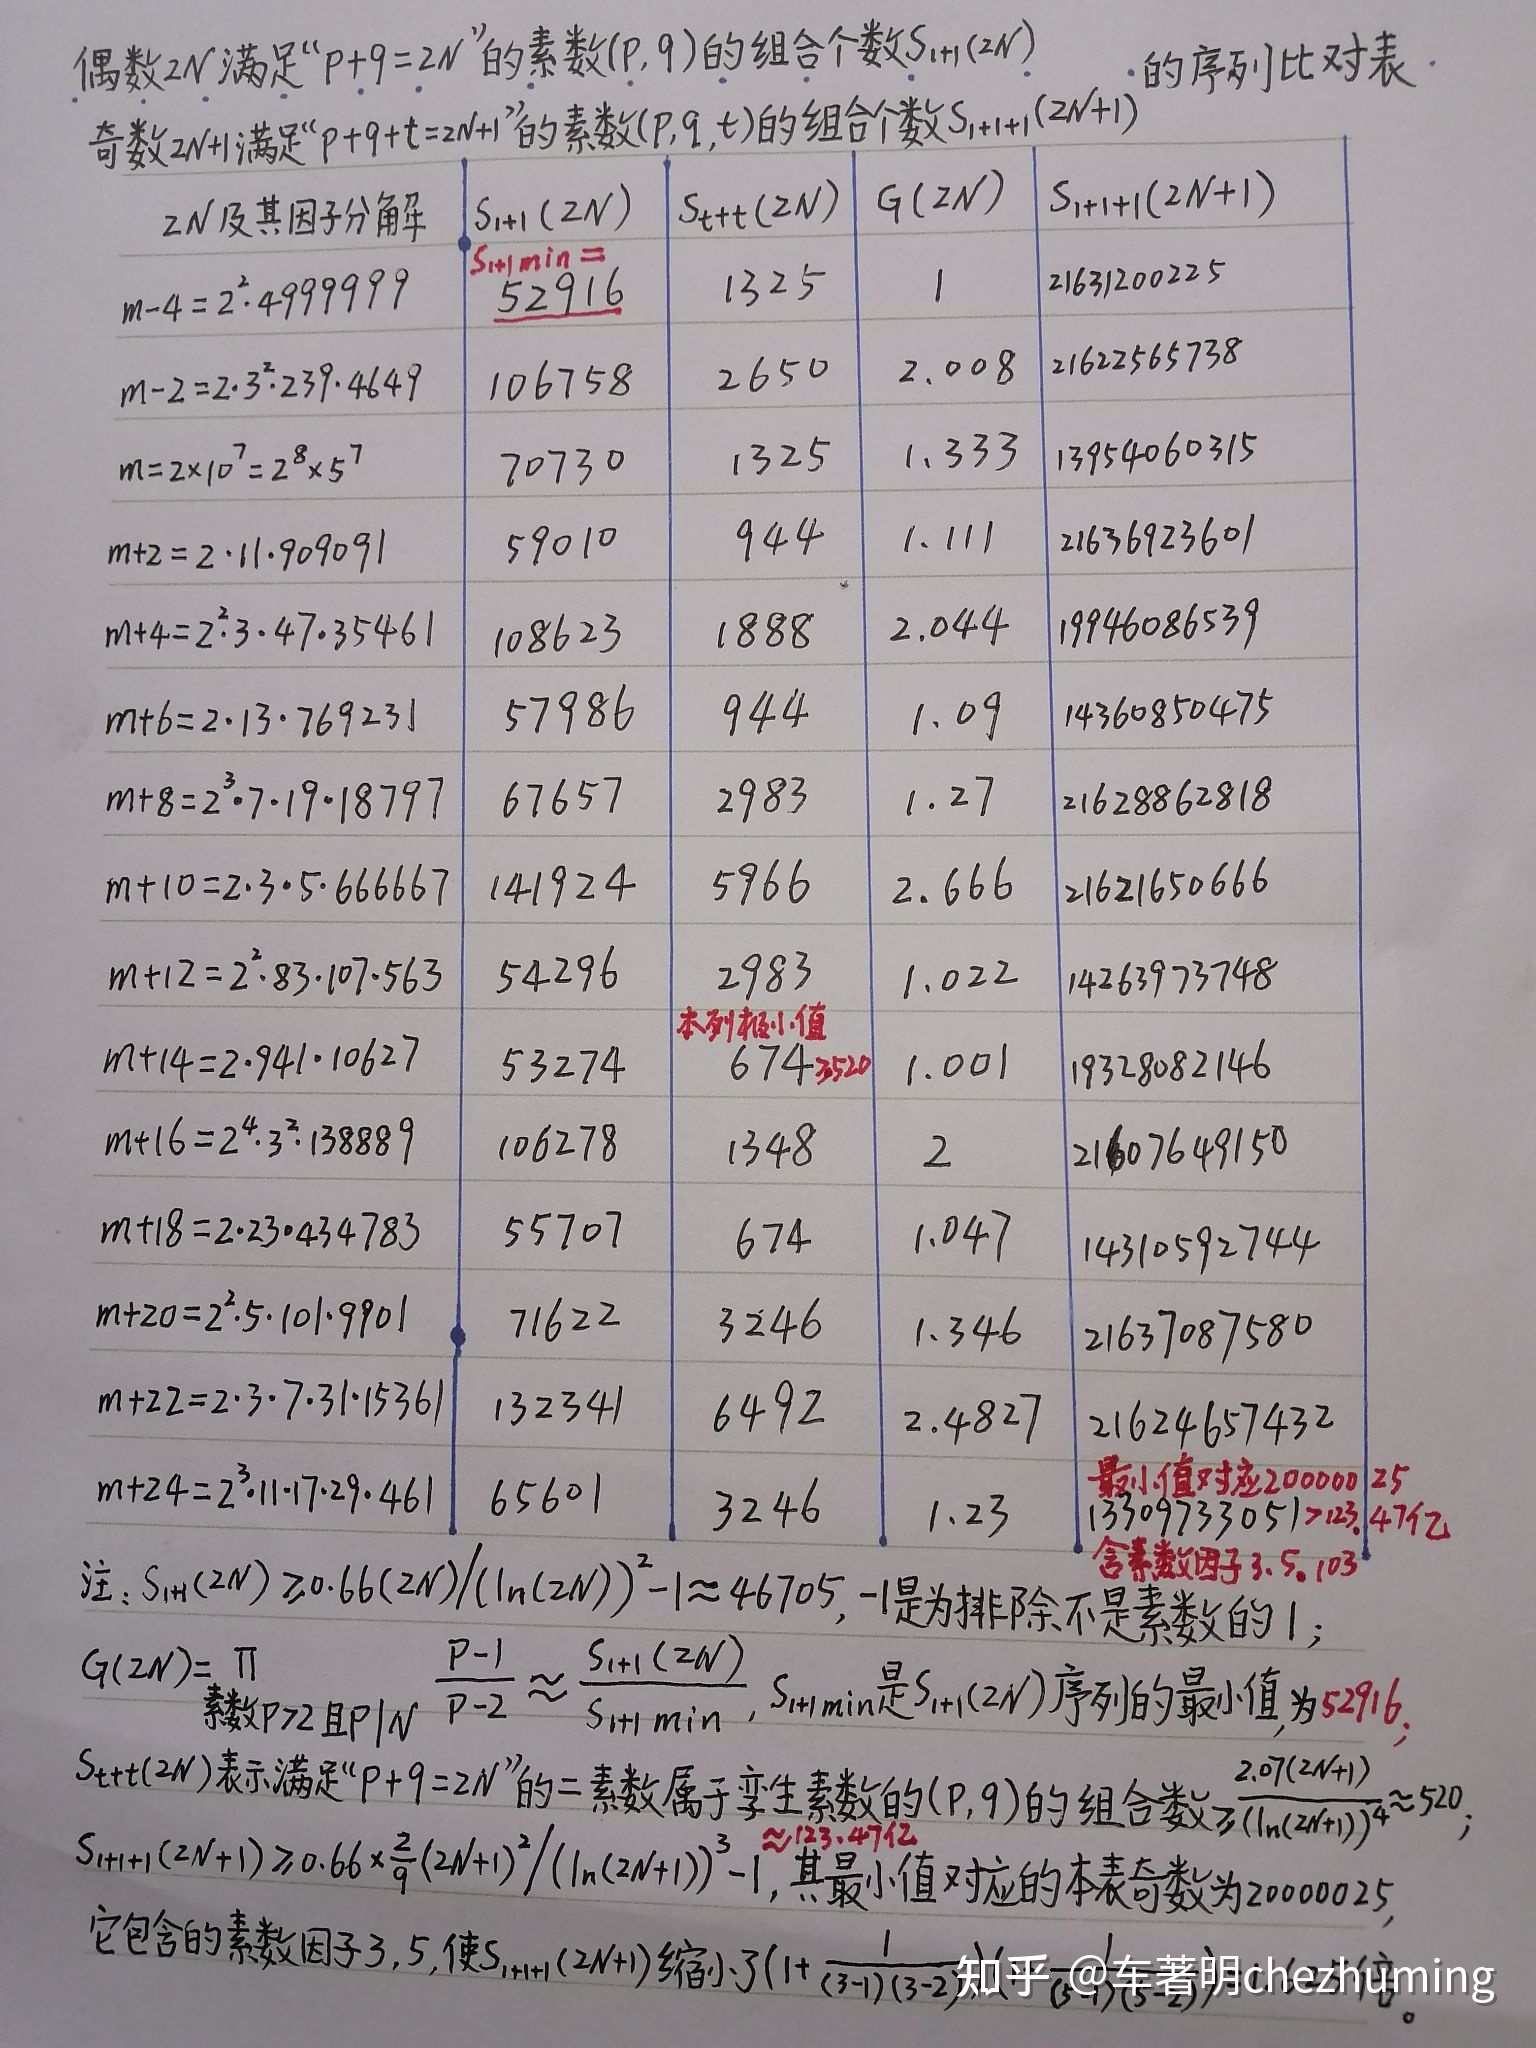 偶数2N满足“P+q=2N”的素数(P,q)的组合个数S₁₊₁(2N)
的序列比对表
奇数2N+1满足“P+q+t=2N+1”的素数(P,q,t)的组合个数S₁₊₁₊₁(2N+1)
2N及其因子分解 S₁₊₁(2N) Sₜ₊ₜ(2N) G(2N) S₁₊₁₊₁(2N+1)
S₁₊₁min=
m-4=2²·4999999 52916 1325 1 21631200225
m-2=2·3²·239·4649 106758 2650 2.008 21622565738
m=2×10⁷=2⁸×5⁷ 70730 1325 1.333 13954060315
m+2=2·11·909091 59010 944 1.111 21636923601
m+4=2²·3·47·35461 108623 1888 2.044 19946086539
m+6=2·13·769231 57986 944 1.09 14360850475
m+8=2³·7·19·18797 67657 2983 1.27 21628862818
m+10=2·3·5·666667 141924 5966 2.666 21621650666
m+12=2²·83·107·563 54296 2983 1.022 14263973748
本列极小值
m+14=2·941·10627 53274 674 3520 1.001 19328082146
m+16=2⁴·3²·138889 106278 1348 2 21607649150
m+18=2·23·434783 55707 674 1.047 14310592744
m+20=2²·5·101·9901 71622 3246 1.346 21637087580
m+22=2·3·7·31·15361 132341 6492 2.4827 21624657432
最小值对应20000025
m+24=2³·11·17·29·461 65601 3246 1.23 13309733051>123.47亿
含素数因子3.5.103
注:S₁₊₁(2N)≥0.66(2N)/(ln(2N))²-1≈46705,-1是为排除不是素数的1;
G(2N)=∏ 素数P>2且P|N (P-1)/(P-2)≈S₁₊₁(2N)/S₁₊₁min,S₁₊₁min是S₁₊₁(2N)序列的最小值,为52916;
Sₜ₊ₜ(2N)表示满足“P+q=2N”的二素数属于孪生素数的(P,q)的组合数≥2.07(2N+1)/(ln(2N+1))⁴≈520;
≈123.47亿
S₁₊₁₊₁(2N+1)≥0.66×2/9(2N+1)²/(ln(2N+1))³-1,其最小值对应的本表奇数为20000025,
它包含的素数因子3,5,使S₁₊₁₊₁(2N+1)缩小了(1+1/(3-1)(3-2))(1/(5-1)(5-2))=1.625倍。
知乎 @车著明chezhuming